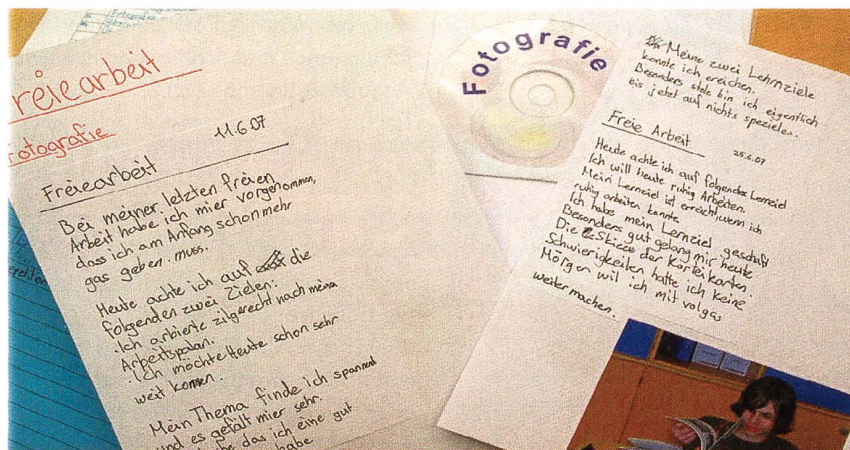 Freiearbeit
Fotografie
Freiearbeit
11.6.07
Bei meiner letzten freien
Arbeit habe ich mier vorgenommen,
dass ich am Anfang schon mehr
gas geben muss.
Heute achte ich auf die
folgenden zwei Zielen:
·Ich arbierte zilgerecht nach meinem
Arbeitsplan.
·Ich möchte Heute schon sehr
weit kommen.
Mein Thema finde ich spannend
und es gefält mier sehr.
das ich eine gut
habe
Fotografie
Meine zwei Lehrnziele
konnte ich ereichen.
Besonders stolz bin ich eigentlich
bis jetzt auf nichts spezieles.
Freie Arbeit
25.6.07
Heute achte ich auf folgendes Lernziel
Ich will heute ruhig Arbeiten.
Mein Lernziel ist erreicht, wenn ich
ruhig arbeiten konnte
Ich habe mein Lernziel geschaft
Besonders gut gelang mir heute
Die Skizze der Karteikarten.
Schwierigkeiten hatte ich keine
Morgen wil ich mit volgas
weiter machen.